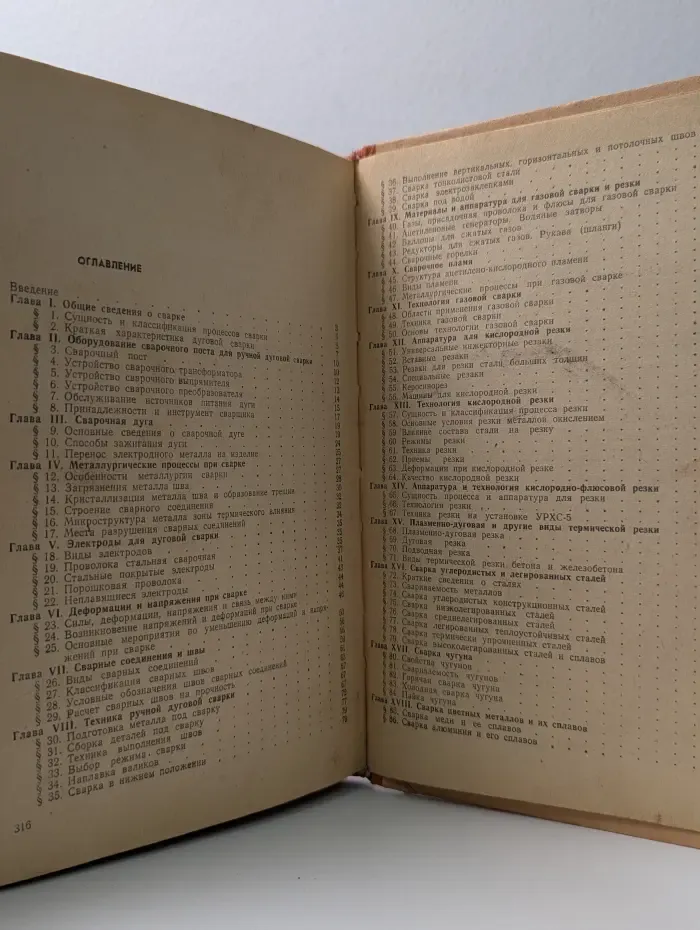 ОГЛАВЛЕНИЕ
Введение
Глава I. Общие сведения о сварке
§ 1. Сущность и классификация процессов сварки
§ 2. Краткая характеристика дуговой сварки
Глава II. Оборудование сварочного поста для ручной дуговой сварки
§ 3. Сварочный пост
§ 4. Устройство сварочного трансформатора
§ 5. Устройство сварочного выпрямителя
§ 6. Устройство сварочного преобразователя
§ 7. Обслуживание источников питания дуги
§ 8. Принадлежности и инструмент сварщика
Глава III. Сварочная дуга
§ 9. Основные сведения о сварочной дуге
§ 10. Способы зажигания дуги
§ 11. Перенос электродного металла на изделие
Глава IV. Металлургические процессы при сварке
§ 12. Особенности металлургии сварки
§ 13. Загрязнения металла шва
§ 14. Кристаллизация металла шва и образование трещин
§ 15. Строение сварного соединения
§ 16. Микроструктура металла зоны термического влияния
§ 17. Места разрушения сварных соединений
Глава V. Электроды для дуговой сварки
§ 18. Виды электродов
§ 19. Проволока стальная сварочная
§ 20. Стальные покрытые электроды
§ 21. Порошковая проволока
§ 22. Неплавящиеся электроды
Глава VI. Деформации и напряжения при сварке
§ 23. Силы, деформации, напряжения и связь между ними
§ 24. Возникновение напряжений и деформаций при сварке
§ 25. Основные мероприятия по уменьшению деформаций и напря-
жений при сварке
Глава VII. Сварные соединения и швы
§ 26. Виды сварных соединений
§ 27. Классификация сварных швов
§ 28. Условные обозначения швов сварных соединений
§ 29. Расчет сварных швов на прочность
Глава VIII. Техника ручной дуговой сварки
§ 30. Подготовка металла под сварку
§ 31. Сборка деталей под сварку
§ 32. Техника выполнения швов
§ 33. Выбор режима сварки
§ 34. Наплавка валиков
§ 35. Сварка в нижнем положении
316
§ 36. Выполнение вертикальных, горизонтальных и потолочных швов
§ 37. Сварка тонколистовой стали
§ 38. Сварка электрозаклепками
§ 39. Сварка под водой
Глава IX. Материалы и аппаратура для газовой сварки и резки
§ 40. Газы, присадочная проволока и флюсы для газовой сварки
§ 41. Ацетиленовые генераторы. Водяные затворы
§ 42. Баллоны для сжатых газов
§ 43. Редукторы для сжатых газов. Рукава (шланги)
§ 44. Сварочные горелки
Глава X. Сварочное пламя
§ 45. Структура ацетилено-кислородного пламени
§ 46. Виды пламени
§ 47. Металлургические процессы при газовой сварке
Глава XI. Технология газовой сварки
§ 48. Области применения газовой сварки
§ 49. Техника газовой сварки
§ 50. Основы технологии газовой сварки
Глава XII. Аппаратура для кислородной резки
§ 51. Универсальные инжекторные резаки
§ 52. Вставные резаки
§ 53. Резаки для резки стали больших толщин
§ 54. Специальные резаки
§ 55. Керосинорез
§ 56. Машины для кислородной резки
Глава XIII. Технология кислородной резки
§ 57. Сущность и классификация процесса резки
§ 58. Основные условия резки металлов окислением
§ 59. Влияние состава стали на резку
§ 60. Режимы резки
§ 61. Техника резки
§ 62. Приемы резки
§ 63. Деформации при кислородной резке
§ 64. Качество кислородной резки
Глава XIV. Аппаратура и технология кислородно-флюсовой резки
§ 65. Сущность процесса и аппаратура для резки
§ 66. Технология резки
§ 67. Техника резки на установке УРХС-5
Глава XV. Плазменно-дуговая и другие виды термической резки
§ 68. Плазменно-дуговая резка
§ 69. Дуговая резка
§ 70. Подводная резка
§ 71. Виды термической резки бетона и железобетона
Глава XVI. Сварка углеродистых и легированных сталей
§ 72. Краткие сведения о сталях
§ 73. Свариваемость металлов
§ 74. Сварка углеродистых конструкционных сталей
§ 75. Сварка низколегированных сталей
§ 76. Сварка среднелегированных сталей
§ 77. Сварка легированных теплоустойчивых сталей
§ 78. Сварка термически упрочненных сталей
§ 79. Сварка высоколегированных сталей и сплавов
Глава XVII. Сварка чугуна
§ 80. Свойства чугунов
§ 81. Свариваемость чугунов
§ 82. Горячая сварка чугуна
§ 83. Холодная сварка чугуна
§ 84. Пайка чугуна
Глава XVIII. Сварка цветных металлов и их сплавов
§ 85. Сварка меди и ее сплавов
§ 86. Сварка алюминия и его сплавов